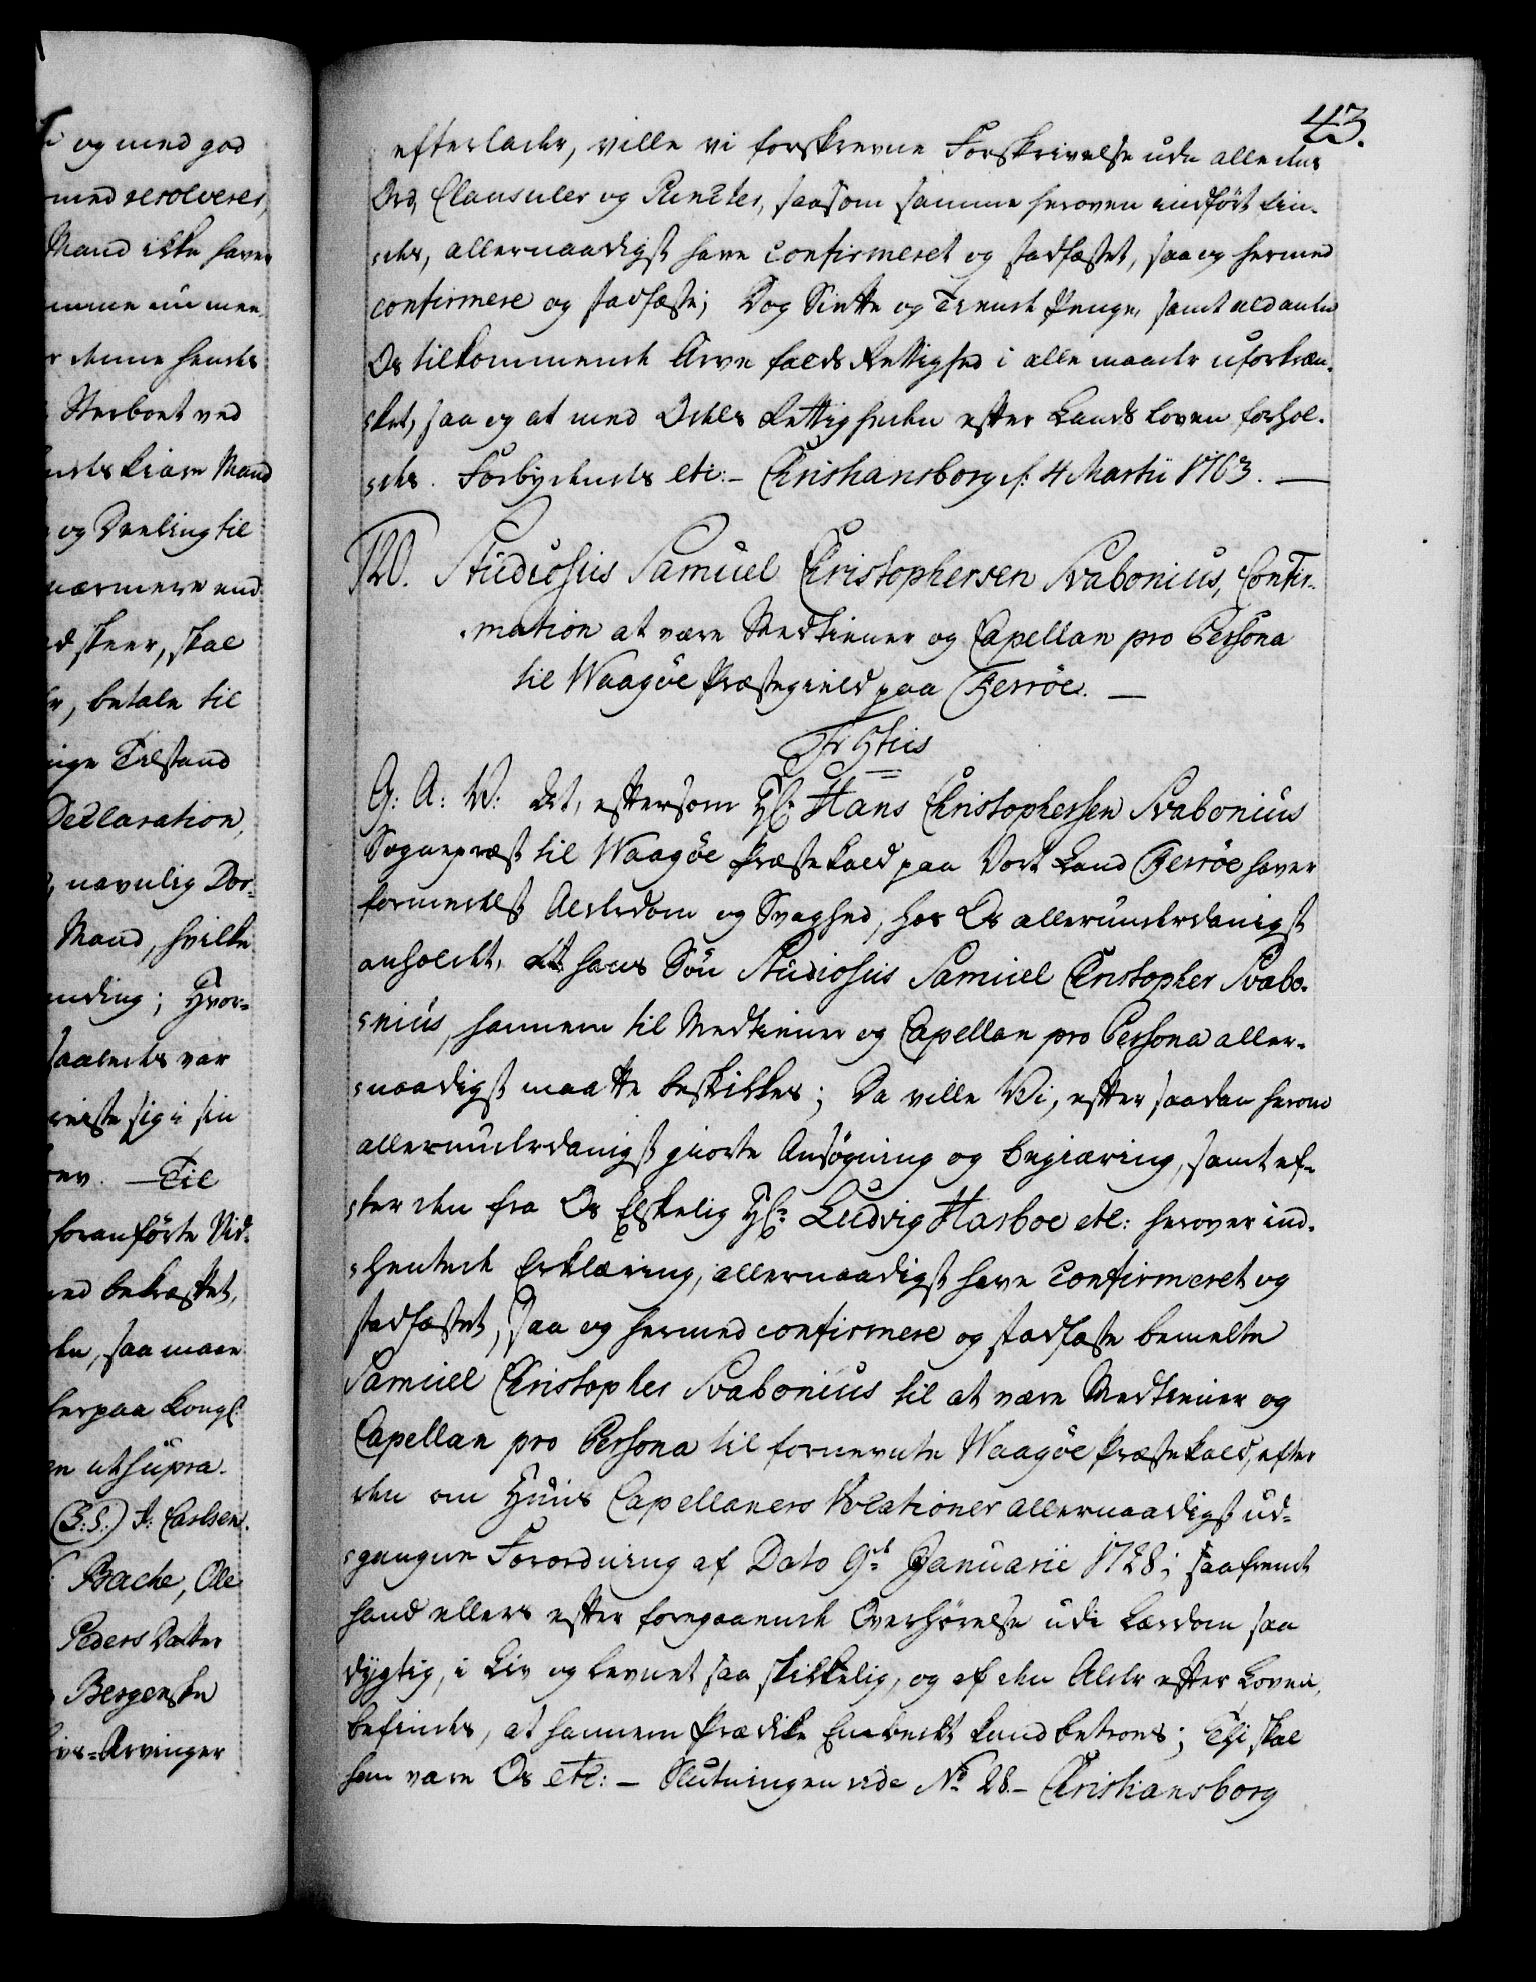 43.
efterlader, ville vi forskrevne Forskrivelse udi alle dens
Ord, Clausuler og Puncter, saasom samme heroven indført fin-
des, allernaadigst have confirmeret og stadfæstet, saa og hermed
confirmere og stadfæste; Dog Siette og Tiende Penge, samt ald anden
Os tilkommende Arve falds Rettighed i alle maader uforkræn-
ket, saa og at med Odels Rettigheden efter Lands Loven forhol-
des. Forbydendes etc:- Christiansborg d: 4 Martii 1763. —
120. Studiosus Samuel Christophersen Svabonius, Confir-
mation at være Medtiener og Capellan pro Persona
til Waagöe Præstegield paa Færröe. —
Fr 5tus
G: A: V: At, eftersom Hr Hans Christophersen Svabonius
Sognepræst til Waagöe Præstekald paa Vort Land Færröe haver
formedelst Alderdom og Svaghed, hos Os allerunderdanigst
anholdet, at hans Søn Studiosus Samuel Christopher Svabo-
nius, hannem til Medtiener og Capellan pro Persona aller-
naadigst maatte beskikkes; Da ville Vi, efter saadan herom
allerunderdanigst giorte Ansøgning og begiæring, samt ef-
ter den fra Os Elskelig Hr Ludvig Harboe etc: herover ind-
hentede Erklæring, allernaadigst have confirmeret og
stadfæstet, saa og hermed confirmere og stadfæste bemelte
Samuel Christopher Svabonius til at være Medtiener og
Capellan pro Persona til fornevnte Waagöe Præstekald, efter
den om Huus Capellaners Vocationer allernaadigst ud-
gangne Forordning af Dato 9de Januarii 1728; saafremt
hand ellers efter foregaaende Overhørelse udi Lærdom saa
dygtig, i Liv og levnet saa skikkelig, og af den Alder efter Loven,
befindes, at hannem Prædike Embedet kand betroes; Thi skal
han være Os etc: — Slutningen vide No 28 - Christiansborg
og med god
med resolverer,
Mand ikke haver
denne hendes
Sterboet ved
kiære Mand
og Deeling til
nærmere end
skeer, skal
betale til
Tilstand
Declaration,
navnlig Dor-
Mand, hvilke
Hvor-
saaledes var
sig i sin
Til
foranførte Vid-
bekræftet,
saa maae
herpaa Kongl:
ut supra.
(L:S:) J: Carlsen.
Bache, Ole
Peders Datter
Bergenske
Livs-Arvinger